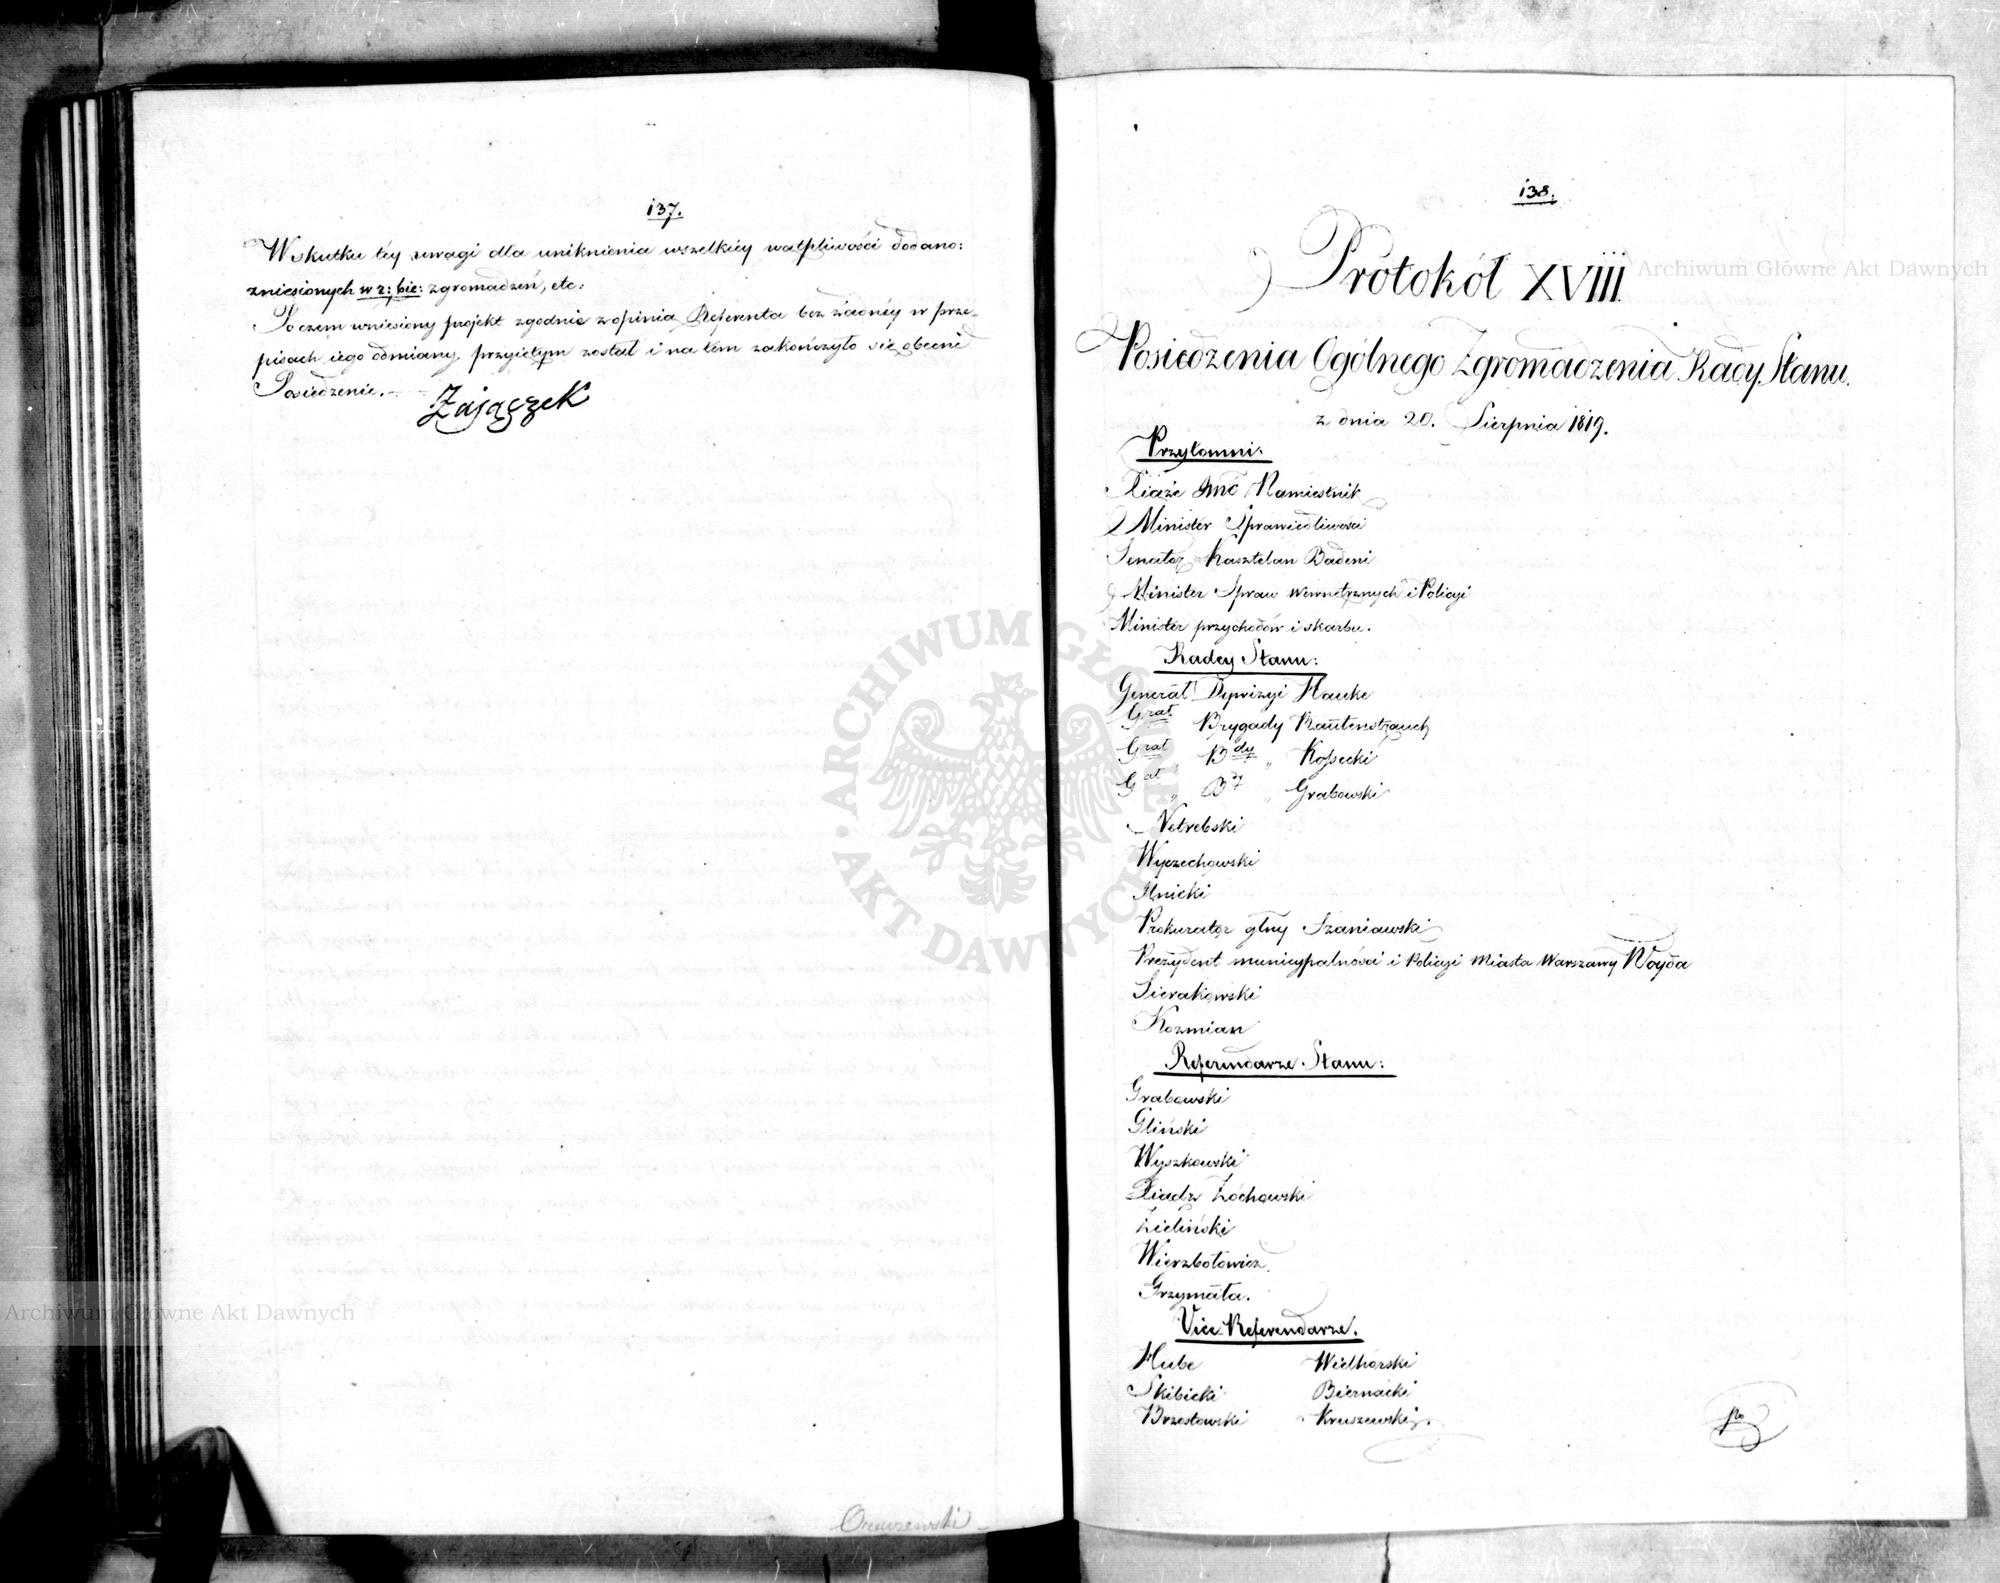 137.
W skutku tey uwagi dla uniknienia wszelkiey wątpliwości dodano:
zniesionych w r: bie: zgromadzeń, etc:
Poczem wniesiony projekt zgodnie z opinią Referenta bez żadney w prze-
pisach iego odmiany, przyiętym został i na tem zakończyło się obecne
Posiedzenie.
Zajączek
138.
Protokół XVIII.
Posiedzenia Ogólnego Zgromadzenia Rady Stanu.
z dnia 20. Sierpnia 1819.
Przytomni:
Xiąże Jmć Namiestnik
Minister Sprawiedliwości
Senator Kasztelan Badeni
Minister Spraw Wewnętrznych i Policyi
Minister przychodów i skarbu.
Radcy Stanu:
Generał Dywizyi Hauke
Grał Brygady Rautenstrauch
Grał " Bdy " Kossecki
Gał " By " Grabowski
Netrebski
Wyczechowski
Ilnicki
Prokurator głny Szaniawski
Prezydent municypalności i Policyi Miasta Warszawy Woyda
Sierakowski
Kozmian
Referendarze Stanu:
Grabowski
Gliński
Wyszkowski
Xiądz Żochowski
Zieliński
Wierzbołowicz
Grzymała.
Vice-Referendarze.
Hube Wielhorski
Skibicki Biernacki
Brzostowski Kruszewski.
po
Archiwum Główne Akt Dawnych
Archiwum Główne Akt Dawnych
ARCHIWUM GŁÓWNE AKT DAWNYCH